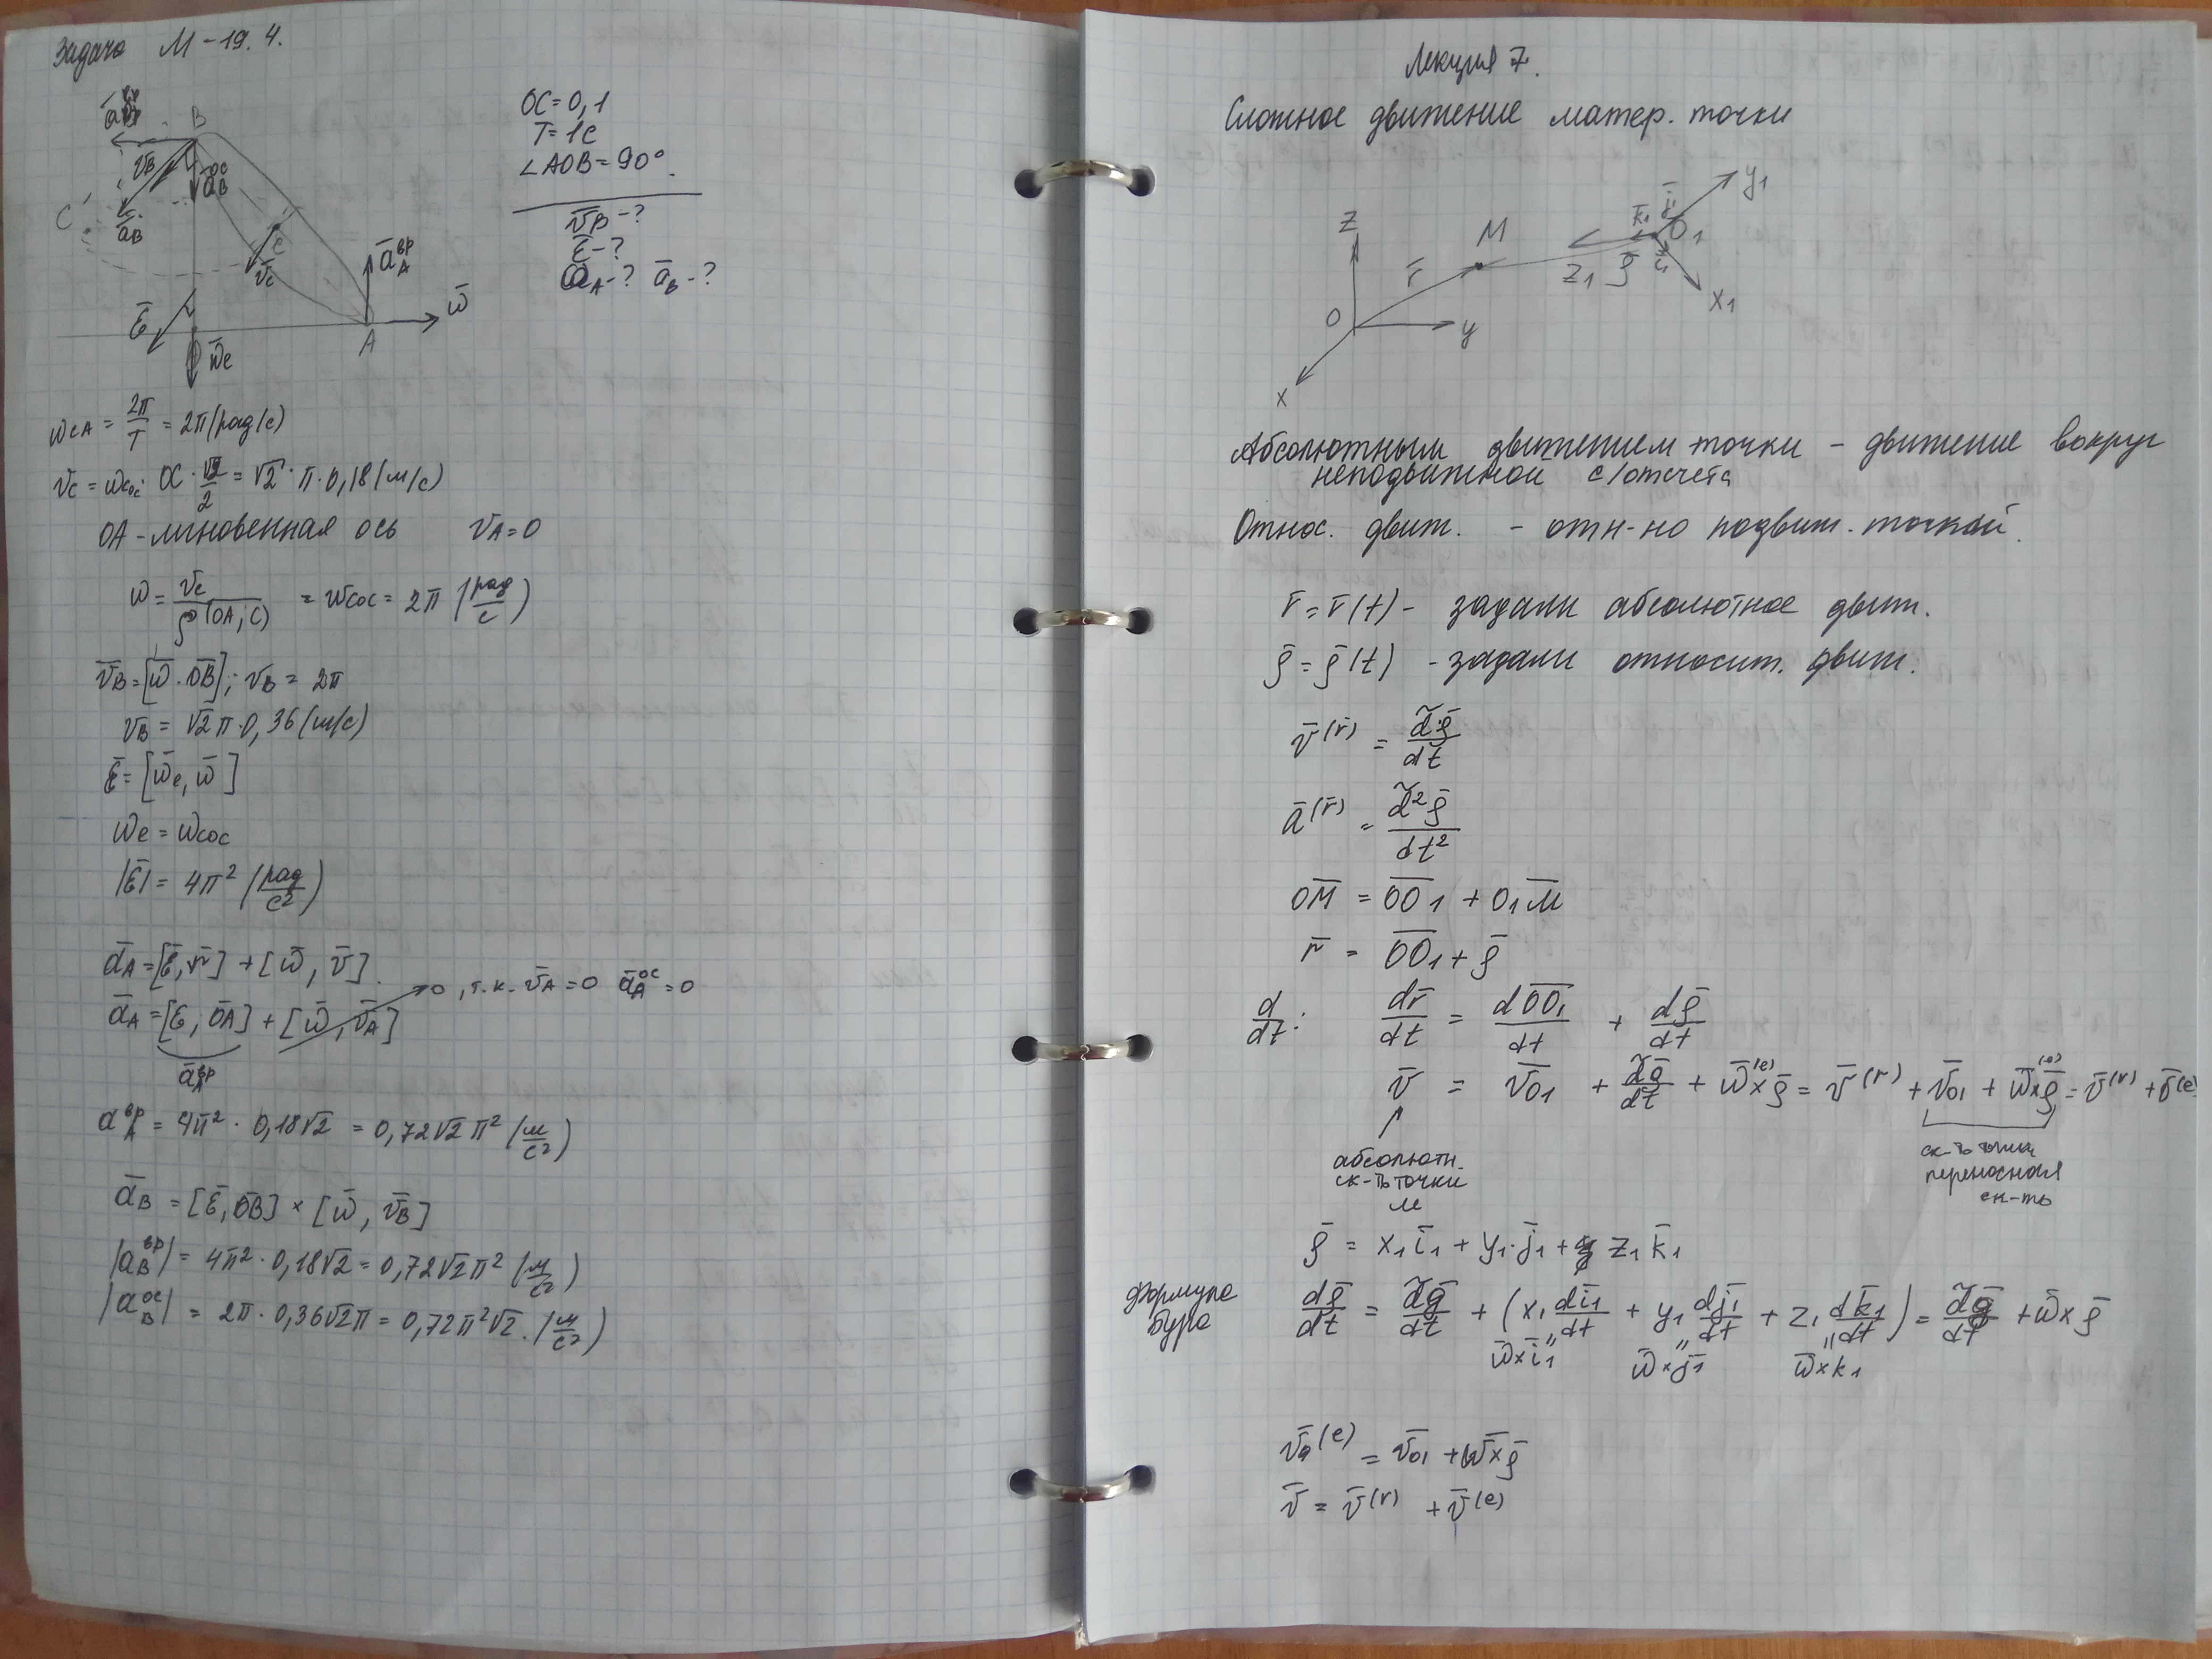 Задача М-19.4.
ā_B^вр B
v̄_B ā_B^ос
C' ā_B
C v̄_C ā_A^вр
ε̄ ω̄
A
ω̄e
OC=0,1
T=1c
∠AOB=90°.
v̄_B-?
ε̄-?
a_A-? ā_B-?
ω_CA = 2π/T = 2π(рад/с)
v_C = ω_COC · OC · √2/2 = √2 · π · 0,18(м/с)
OA - мгновенная ось v_A=0
ω = v_C/ρ(OA;C) = ω_COC = 2π (рад/с)
v̄_B=[ω̄·O̅B̅]; v_B = 2π
v_B = √2 π·0,36(м/с)
ε̄=[ω̄e, ω̄]
ωe = ω_COC
|ε̄| = 4π² (рад/с²)
ā_A=[ε̄, r̄] + [ω̄, v̄].
ā_A=[ε, ŌA] + [ω̄, v̄_A] → 0, т.к. v̄_A=0 ā_A^ос=0
ā_A^вр
a_A^вр = 4π² · 0,18√2 = 0,72√2 π² (м/с²)
ā_B = [ε̄, O̅B̅] × [ω̄, v̄_B]
|a_B^вр| = 4π²·0,18√2 = 0,72√2π² (м/с²)
|a_B^ос| = 2π·0,36√2π = 0,72π²√2. (м/с²)
Лекция 7.
Сложное движение матер. точки
Z M k̄₁ j̄₁ O₁ y₁
r̄ Z₁ ρ̄ ī₁ X₁
O y
X
Абсолютным движением точки - движение вокруг
неподвижной с/отсчета
Относ. движ. - отн-но подвиж. точкой.
r̄=r̄(t) - задали абсолютное движ.
ρ̄=ρ̄(t) - задали относит. движ.
v̄^(r) = d̃ρ̄/dt
ā^(r) = d̃²ρ̄/dt²
O̅M̅ = O̅O̅₁ + O₁M̅
r̄ = O̅O̅₁ + ρ̄
d/dt: dr̄/dt = dO̅O̅₁/dt + dρ̄/dt
v̄ = v̄_O1 + d̃ρ̄/dt + ω̄^(e)×ρ̄ = v̄^(r) + v̄_O1 + ω̄^(e)×ρ̄ = v̄^(r) + v̄^(e)
абсолютн. ск-ть точки M
ск-ть точки
переносная
ск-ть
ρ̄ = x₁ī₁ + y₁·j̄₁ + z₁k̄₁
формула Бура dρ̄/dt = d̃ρ̄/dt + (x₁dī₁/dt + y₁dj̄₁/dt + z₁dk̄₁/dt) = d̃ρ̄/dt + ω̄×ρ̄
ω̄×ī₁ ω̄×j̄₁ ω̄×k₁
v̄^(e) = v̄_O1 + ω̄×ρ̄
v̄ = v̄^(r) + v̄^(e)